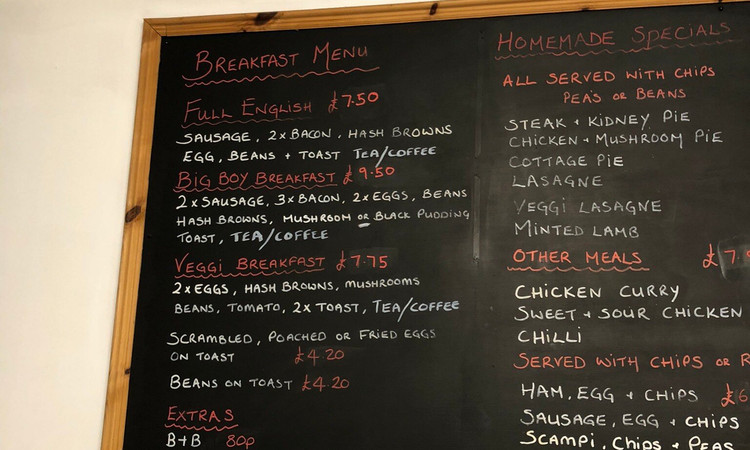 BREAKFAST MENU
FULL ENGLISH £7.50
SAUSAGE, 2xBACON, HASH BROWNS
EGG, BEANS + TOAST TEA/COFFEE
BIG BOY BREAKFAST £9.50
2xSAUSAGE, 3xBACON, 2xEGGS, BEANS
HASH BROWNS, MUSHROOM OR BLACK PUDDING
TOAST, TEA/COFFEE
VEGGI BREAKFAST £7.75
2xEGGS, HASH BROWNS, MUSHROOMS
BEANS, TOMATO, 2xTOAST, TEA/COFFEE
SCRAMBLED, POACHED OR FRIED EGGS
ON TOAST £4.20
BEANS ON TOAST £4.20
EXTRAS
B+B 80p
HOMEMADE SPECIALS
ALL SERVED WITH CHIPS
PEA'S OR BEANS
STEAK + KIDNEY PIE
CHICKEN + MUSHROOM PIE
COTTAGE PIE
LASAGNE
VEGGI LASAGNE
MINTED LAMB
OTHER MEALS £7.
CHICKEN CURRY
SWEET + SOUR CHICKEN
CHILLI
SERVED WITH CHIPS OR
HAM, EGG + CHIPS £6
SAUSAGE, EGG + CHIPS
SCAMPI, CHIPS + PEAS